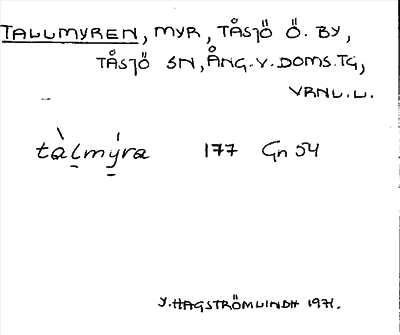 TALLMYREN, MYR, TÅSJÖ Ö. BY,
TÅSJÖ SN, ÅNG. V. DOMS. TG,
VRNL. L.
tàl̠mý̠ra 177 Gn 54
Y. HAGSTRÖMLINDH 1971.